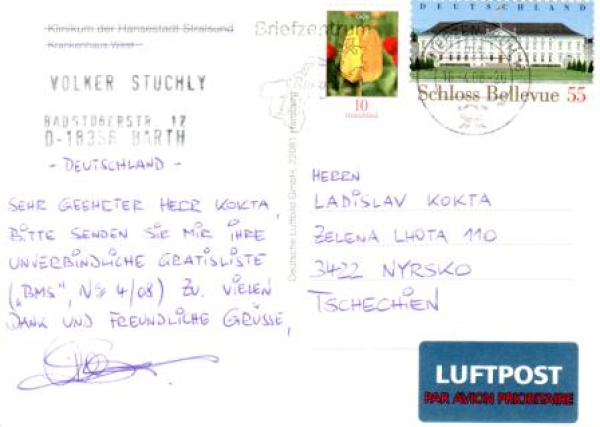 Klinikum der Hansestadt Stralsund
Krankenhaus West
VOLKER STUCHLY
BADSTÜBERSTR. 12
D-18356 BARTH
- DEUTSCHLAND -
SEHR GEEHRTER HERR KOKTA,
BITTE SENDEN SIE MIR IHRE
UNVERBINDLICHE GRATISLISTE
("BMS", N° 4/08) ZU. VIELEN
DANK UND FREUNDLICHE GRÜSSE,
Briefzentrum
10
Deutschland
DEUTSCHLAND
Schloss Bellevue 55
Deutsche Luftbild GmbH, 22081 Hamburg
HERRN
LADISLAV KOKTA
ZELENA LHOTA 110
3422 NYRSKO
TSCHECHIEN
LUFTPOST
PAR AVION PRIORITAIRE